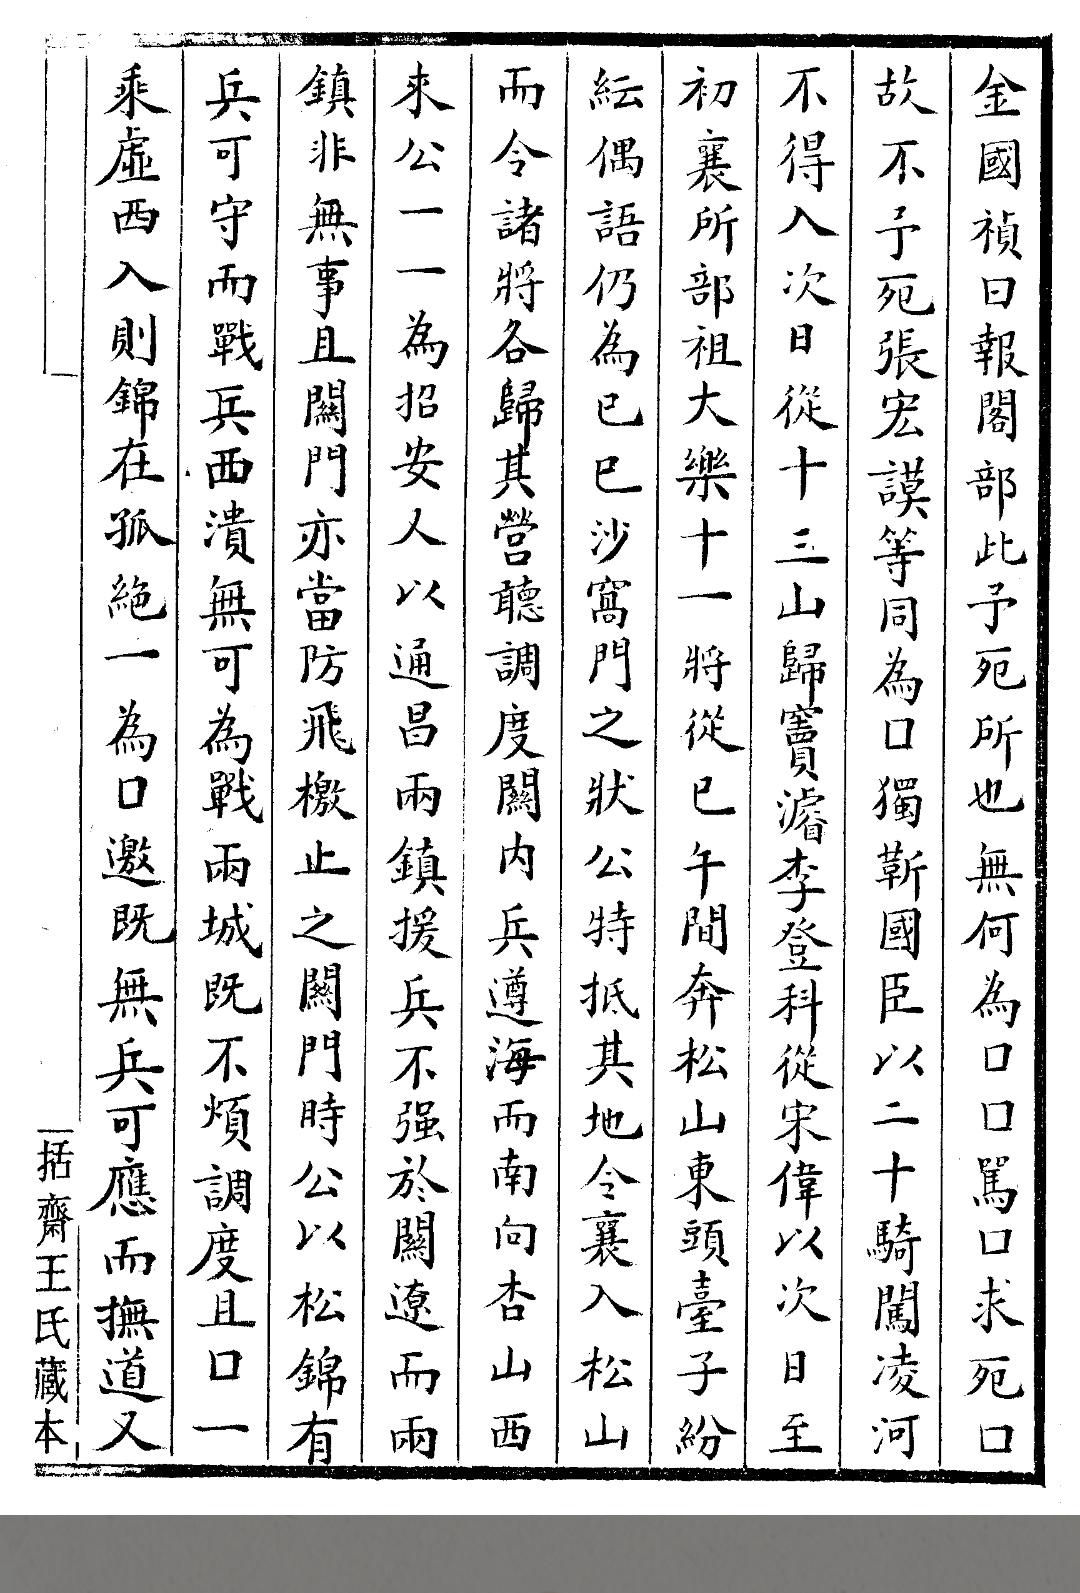 金國禎曰報閣部此予死所也無何為口口罵口求死口
故不予死張宏謨等同為口獨靳國臣以二十騎闖凌河
不得入次日從十三山歸竇濬李登科從宋偉以次日至
初襄所部祖大樂十一將從已午間奔松山東頭臺子紛
紜偶語仍為已巳沙窩門之狀公特抵其地令襄入松山
而令諸將各歸其營聽調度關內兵遵海而南向杏山西
來公一一為招安人以通昌兩鎮援兵不强於關遼而兩
鎮非無事且關門亦當防飛檄止之關門時公以松錦有
兵可守而戰兵西潰無可為戰兩城既不煩調度且口一
乘虛西入則錦在孤絕一為口邀既無兵可應而撫道又
括齋王氏藏本